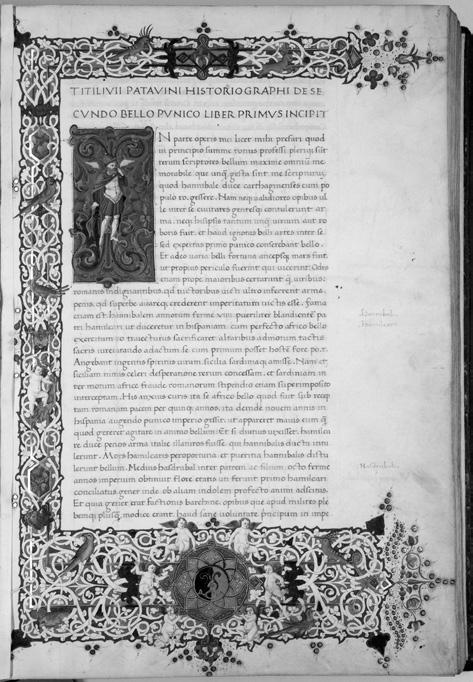 TITI LIVII PATAVINI HISTORIOGRAPHI DE SE
CVNDO BELLO PVNICO LIBER PRIMVS INCIPIT
IN parte operis mei licet mihi prefari quod
in principio summe totius professi plerique sunt
rerum scriptores bellum maxime omnium me
morabile que unquam gesta sint me scripturum
quod hannibale duce carthaginenses cum po
pulo ro. gessere. Nam neque ualidiores opibus ul
le inter se ciuitates gentesque contulerunt ar
ma. neque his ipsis tantum unquam uirium aut ro
boris fuit. et haud ignotas belli artes inter se
sed expertas primo punico conserebant bello.
Et adeo uaria belli fortuna ancepsque mars fuit.
ut propius periculo fuerint qui uicerint. Odiis
etiam prope maioribus certarunt quam uiribus:
romanis indignantibus quod uictoribus uicti ultro inferrent arma.
penis quod superbe auareque crederent imperitatum uictis esse. Fama
etiam est hannibalem annorum ferme viiii pueriliter blandientem pa
tri hamilcari ut duceretur in hispaniam cum perfecto africo bello
exercitum eo traiecturus sacrificaret altaribus admotum tactis
sacris iureiurando adactum se cum primum posset hostem fore po. r.
Angebant ingentis spiritus uirum sicilia sardiniaque amisse. Nam et
siciliam nimis celeri desperatione rerum concessam. et sardiniam in
ter motum africe fraude romanorum stipendio etiam superimposito
interceptam. His anxius curis ita se africo bello quod fuit sub recen
tem romanam pacem per quinque annos. ita deinde nouem annis in
hispania augendo punico imperio gessit. ut appareret maius eum quam
quod gereret agitare in animo bellum. Et si diutius uixisset. hamilca
re duce penos arma italie illaturos fuisse. qui hannibalis ductu intu
lerunt. Mors hamilcaris peroportuna et pueritia hannibalis distu
lerunt bellum. Medius hasdrubal inter patrem ac filium octo ferme
annos imperium obtinuit flore etatis uti ferunt primo hamilcari
conciliatus. gener inde ob aliam indolem profecto animi adscitus.
Et quia gener erat factionis barchine. opibus que apud milites ple
bemque plusquam modice erant. haud sane uoluntate principum in impe
Hannibal.
Hamilcare
Hasdrubale